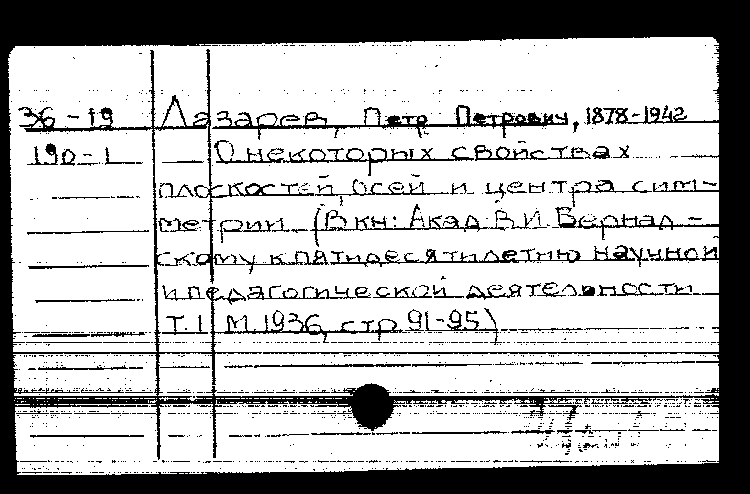 36-19 Лазарев, Петр Петрович, 1878-1942
190-1 О некоторых свойствах
плоскостей, осей и центра сим-
метрии. (В кн: Акад. В.И. Вернад-
скому к пятидесятилетию научной
и педагогической деятельности
Т. I М. 1936, стр. 91-95)